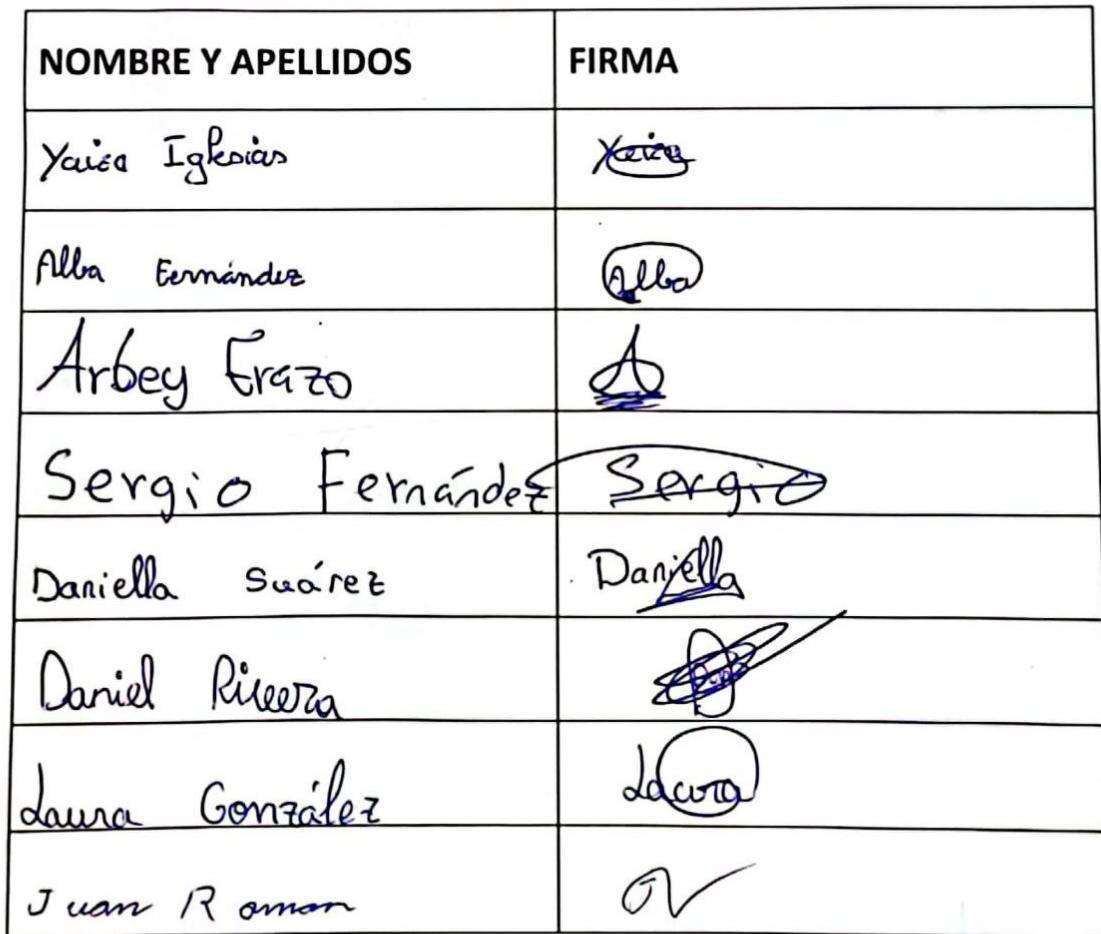 NOMBRE Y APELLIDOS FIRMA
Yaiza Iglesias Yaiza
Alba Fernández Alba
Arbey Erazo A
Sergio Fernández Sergio
Daniella Suárez Daniella
Daniel Rivera
Laura González Laura
Juan Roman